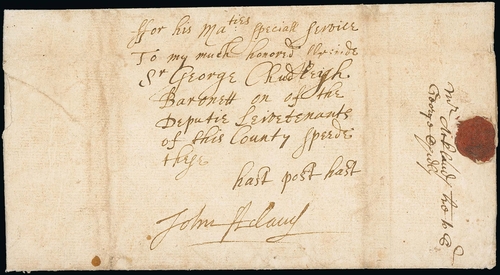 ffor his Ma:ties speciall service
To my much honored ffreinde
Sr George Chudleigh
Baronett on of the
Deputie Leivetenants
of this County speede
these
hast post hast
John Acland